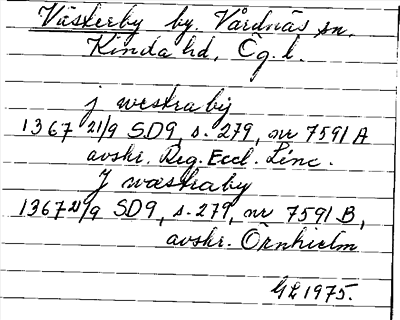 Väskerby by. Vårdnäs sn.
Kinda hd, Ög. l.
j westraby
1367 21/9 SD9, s. 279, nr 7591 A
avskr. Reg. Eccl. Linc.
J wæstraby
1367 21/9 SD9, s. 279, nr 7591 B,
avskr. Örnhielm
GL 1975.